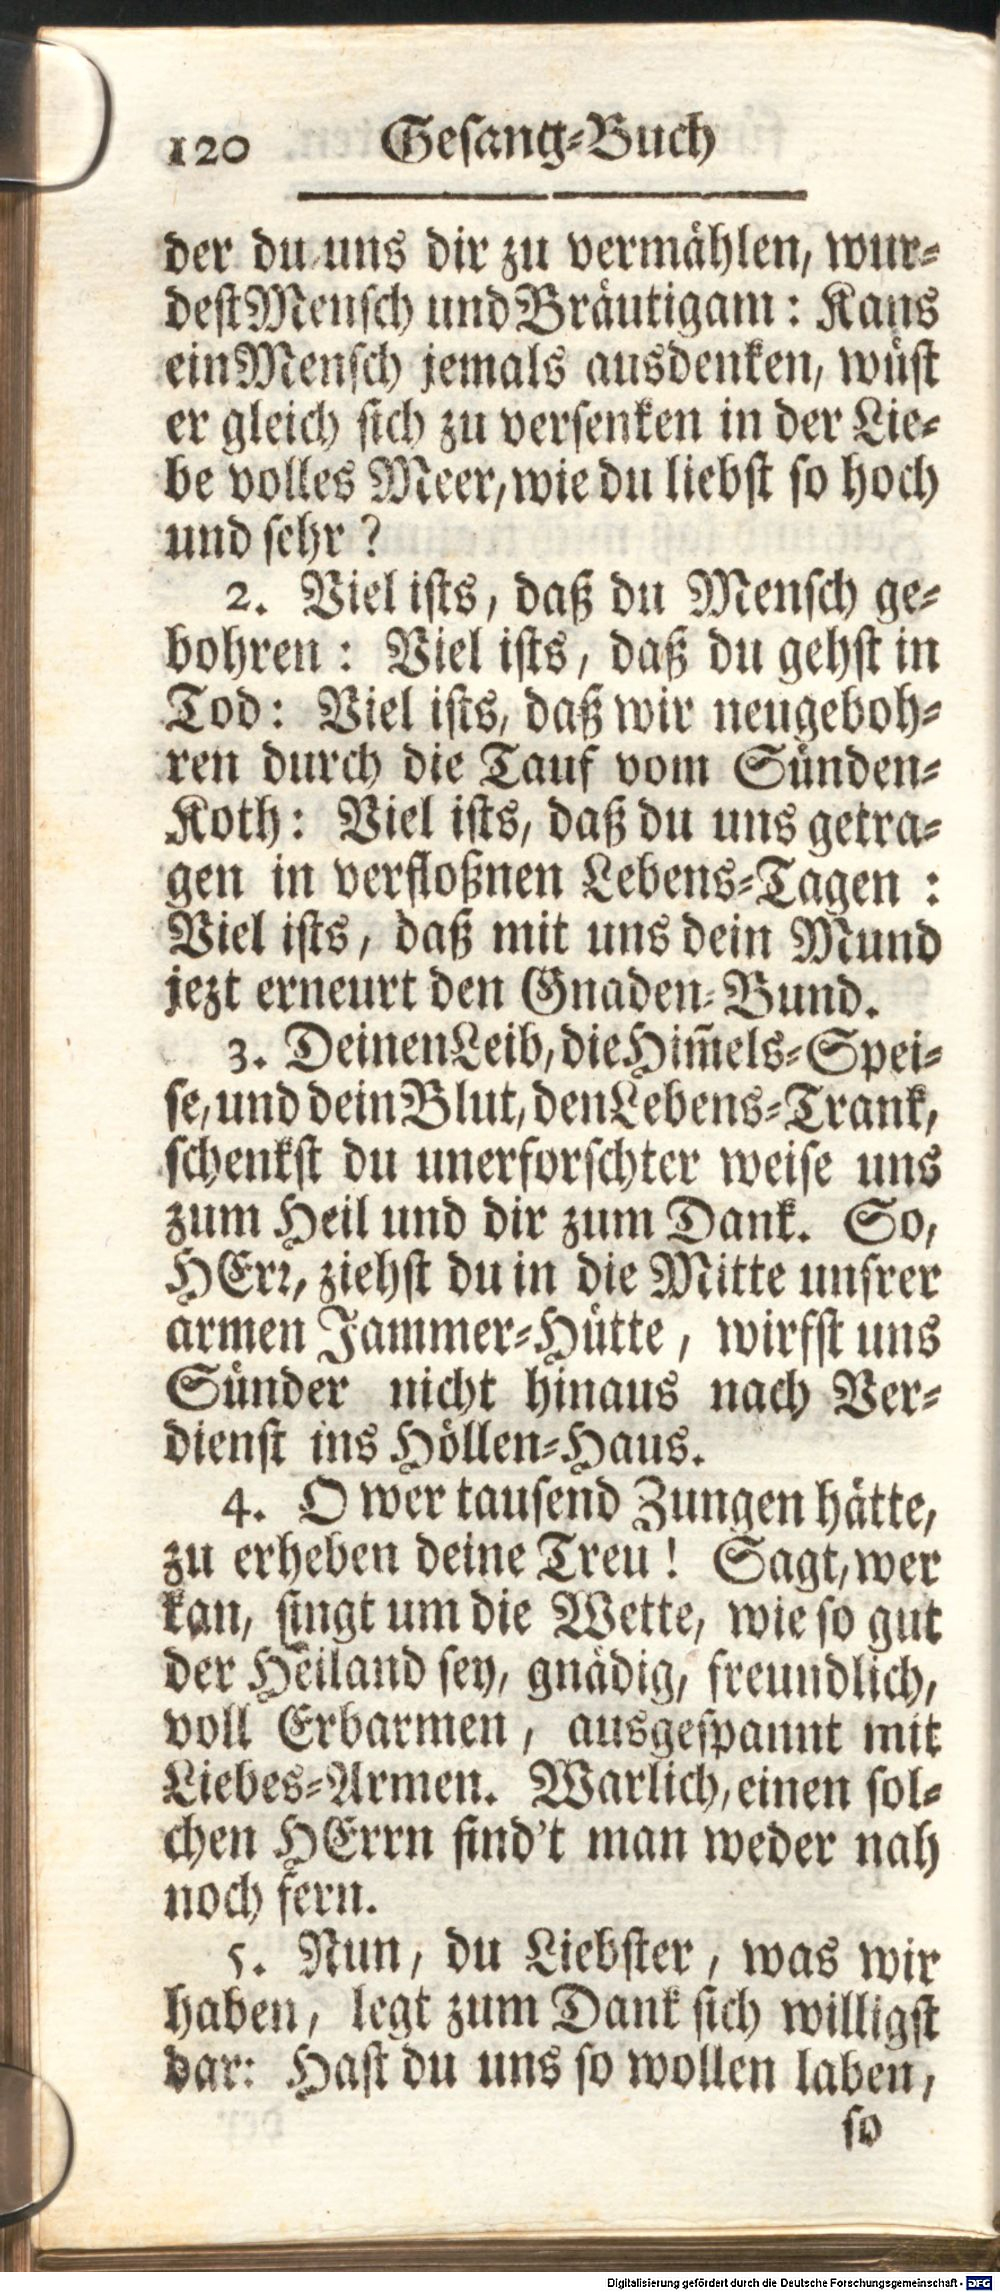 120 Gesang-Buch
der du uns dir zu vermählen, wur-
dest Mensch und Bräutigam: Kans
ein Mensch jemals ausdenken, wüst
er gleich sich zu versenken in der Lie-
be volles Meer, wie du liebst so hoch
und sehr?
2. Viel ists, daß du Mensch ge-
bohren: Viel ists, daß du gehst in
Tod: Viel ists, daß wir neugeboh-
ren durch die Tauf vom Sünden-
Koth: Viel ists, daß du uns getra-
gen in verfloßnen Lebens-Tagen:
Viel ists, daß mit uns dein Mund
jezt erneurt den Gnaden-Bund.
3. Deinen Leib, die Him̃els-Spei-
se, und dein Blut, den Lebens-Trank,
schenkst du unerforschter weise uns
zum Heil und dir zum Dank. So,
HErr, ziehst du in die Mitte unsrer
armen Jammer-Hütte, wirfst uns
Sünder nicht hinaus nach Ver-
dienst ins Höllen-Haus.
4. O wer tausend Zungen hätte,
zu erheben deine Treu! Sagt, wer
kan, singt um die Wette, wie so gut
der Heiland sey, gnädig, freundlich,
voll Erbarmen, ausgespannt mit
Liebes-Armen. Warlich, einen sol-
chen HErrn find't man weder nah
noch fern.
5. Nun, du Liebster, was wir
haben, legt zum Dank sich willigst
dar: Hast du uns so wollen laben,
so
Digitalisierung gefördert durch die Deutsche Forschungsgemeinschaft - DFG